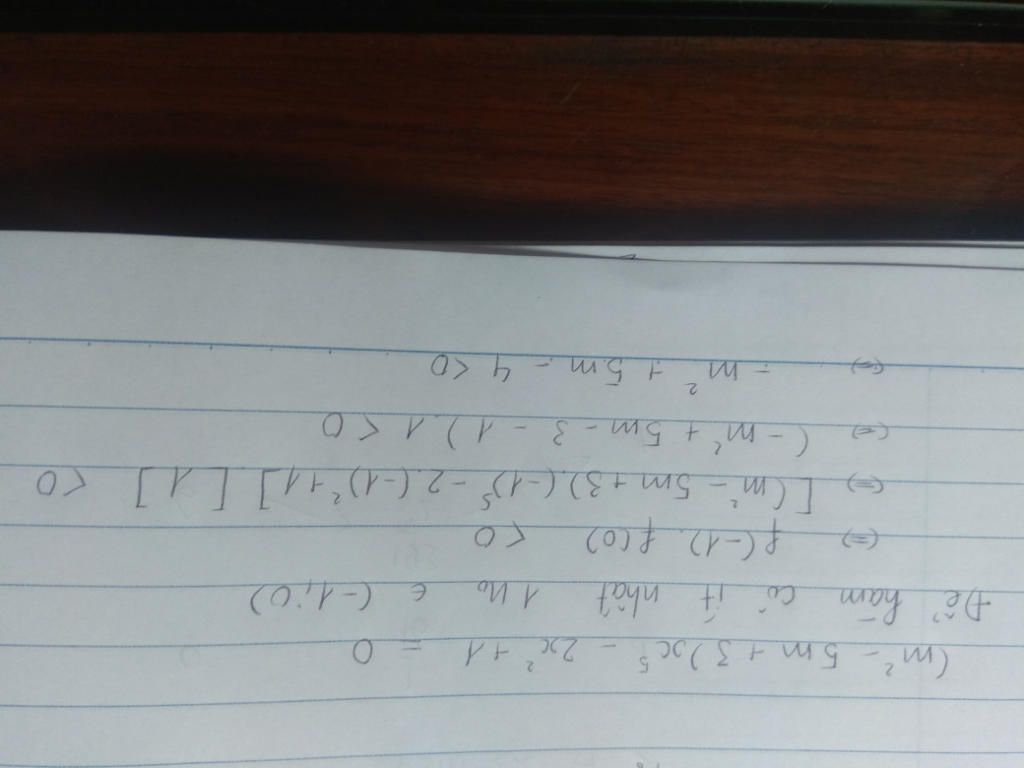 (m² - 5m + 3)x⁵ - 2x² + 1 = 0
Để hàm có ít nhất 1 n₀ ∈ (-1; 0)
(=) f(-1). f(0) < 0
(=) [(m² - 5m + 3).(-1)⁵ - 2.(-1)² + 1] [1] < 0
(=) (-m² + 5m - 3 - 1).1 < 0
(=) -m² + 5m - 4 < 0